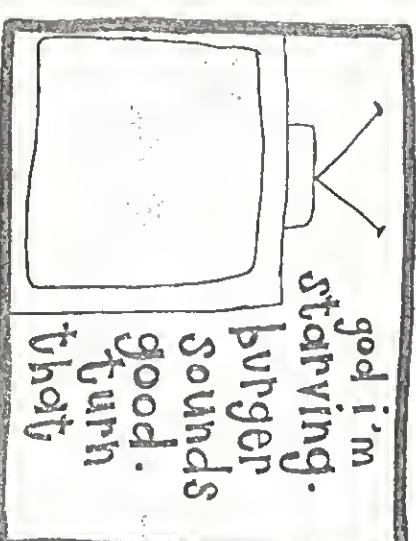 god i'm
starving.
burger
sounds
good.
turn
that